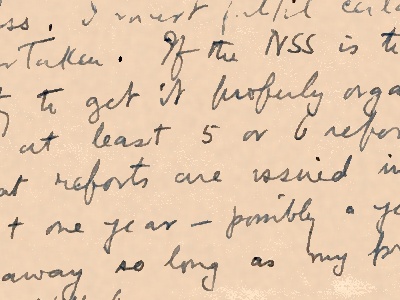 ss. I must fulfil
Taken. If the NSS is
to get it properly orga
at least 5 or 6 repor
at reports are issued in
+ one year – possibly a ye
away so long as my